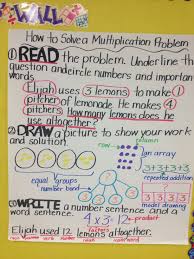 WALL
How to Solve a Multiplication Problem
① READ the problem. Underline the
question and circle numbers and important
words.
Elijah uses 3 lemons to make 1
pitcher of lemonade. He makes 4
pitchers. How many lemons does he
use altogether?
② DRAW a picture to show your work
and solution.
row
column
an array
3+3+3+3
repeated addition
equal groups
number bond
3 3 3 3
model drawing
③ WRITE a number sentence and a
word sentence.
4 x 3 = 12
product
factors
Elijah used 12 lemons altogether.
noun
verb